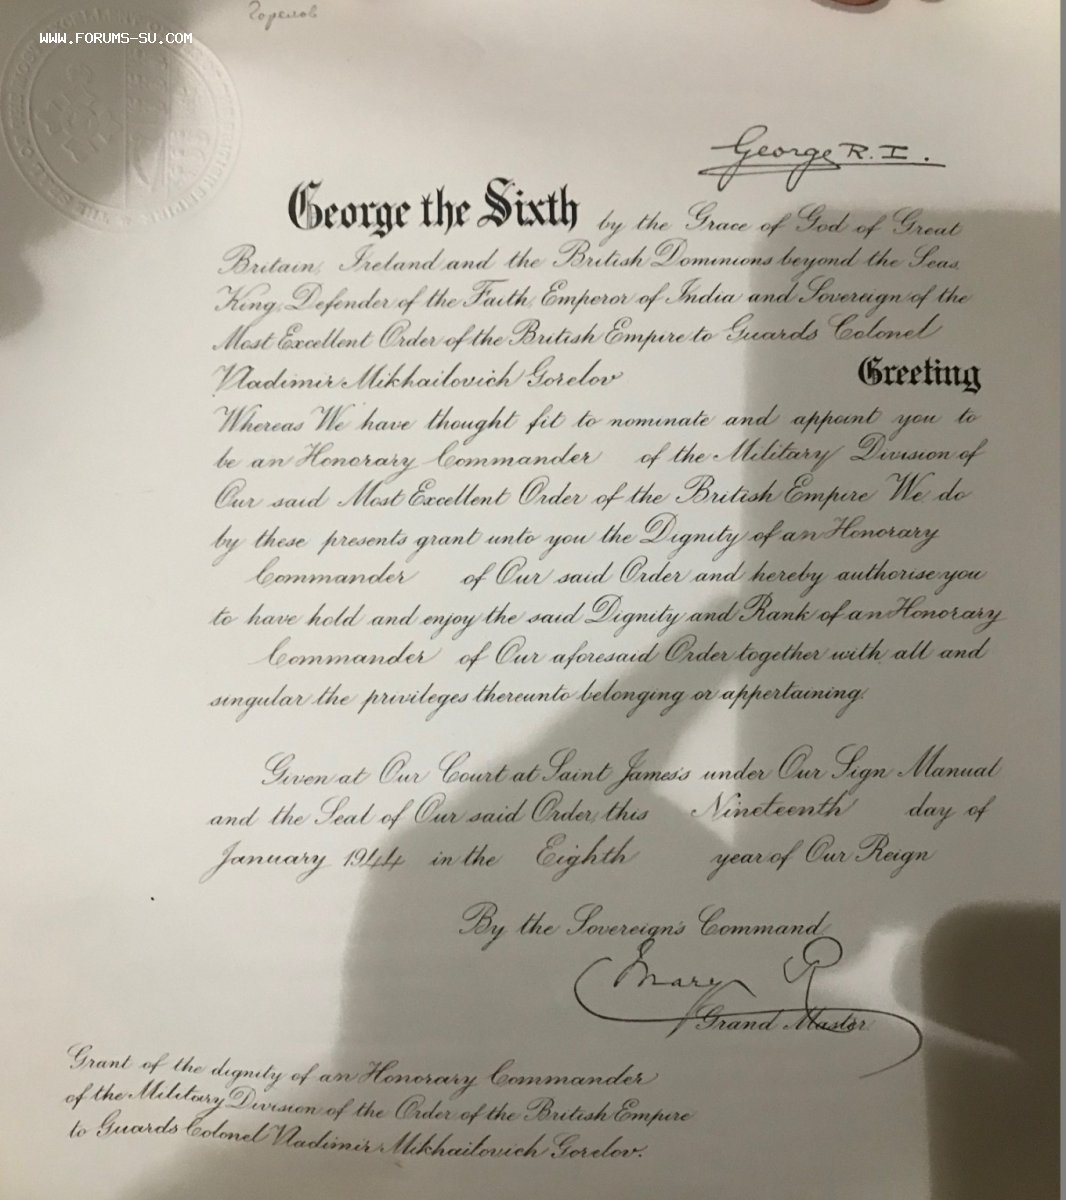 Горелов
WWW.FORUMS-SU.COM
George R.I.
George the Sixth by the Grace of God of Great
Britain, Ireland and the British Dominions beyond the Seas,
King, Defender of the Faith, Emperor of India and Sovereign of the
Most Excellent Order of the British Empire to Guards Colonel
Vladimir Mikhailovich Gorelov Greeting
Whereas We have thought fit to nominate and appoint you to
be an Honorary Commander of the Military Division of
Our said Most Excellent Order of the British Empire We do
by these presents grant unto you the Dignity of an Honorary
Commander of Our said Order and hereby authorise you
to have hold and enjoy the said Dignity and Rank of an Honorary
Commander of Our aforesaid Order together with all and
singular the privileges thereunto belonging or appertaining.
Given at Our Court at Saint James's under Our Sign Manual
and the Seal of Our said Order, this Nineteenth day of
January 1944 in the Eighth year of Our Reign
By the Sovereign's Command,
Mary R
Grand Master
Grant of the dignity of an Honorary Commander
of the Military Division of the Order of the British Empire
to Guards Colonel Vladimir Mikhailovich Gorelov.